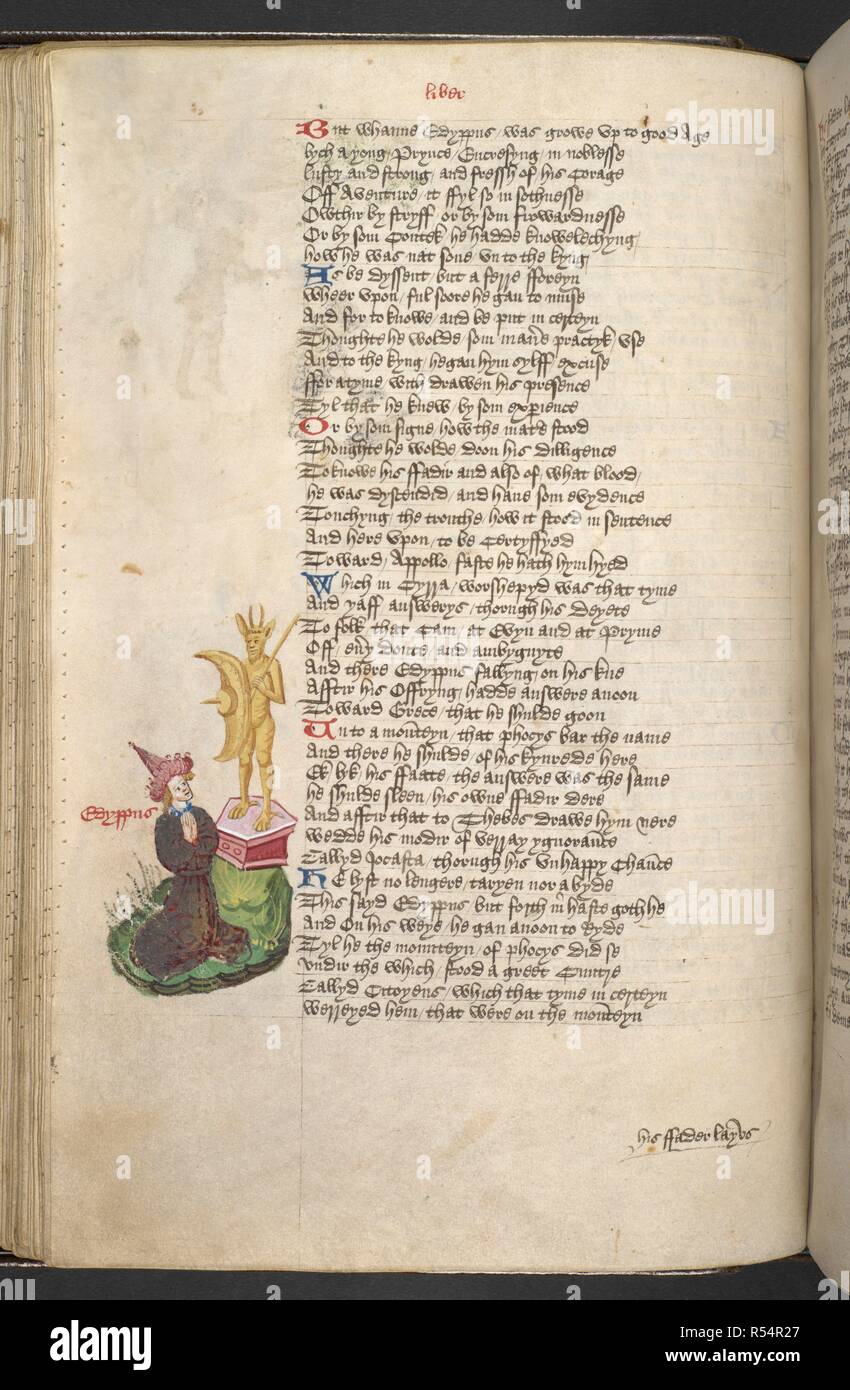 liber
But whanne Edyppus / was growe vp to good Age
lych a yong / Prynce / Encresyng / in noblesse
lusty and strong / and fressh of his Corage
Off Aventure / it ffyl so in sothnesse
Owthir by stryff / or by som ffrowardnesse
Or by som Contek / he hadde knowelechyng
how he was nat sone vn to the kyng
As be dyssent / but a ferre fforeyn
wheer vpon / ful soore he gan to muse
And for to knowe / and be put in certeyn
Thoughte he wolde som manere practyk / vse
And to the kyng / he gan hym sylff excuse
ffor a tyme with drawen his presence
Tyl that he knew / by som experience
Or by som signe / how the mate stood
Thoughte he wolde doon his dilligence
To knowe his ffadir and also of what blood /
he was dyscendid / and haue som evydence
Touchyng / the trouthe / how it stood in sentence
And here vpon / to be Certyffyed
Toward / Appollo / faste he hath hym hyed
Which in Cyrra / worshepyd was that tyme
And yaff answerys / thorugh his deyete
To folk that Cam / at Evyn and at Pryme
Off / eny doute / and ambyguyte
And there Edyppus fallyng / on his kne
Afftir his Offryng / hadde answere anoon
Toward Grece / that he shulde goon
Un to a mounteyn / that phocys bar the name
And there he shulde / of his kynrede here
Ek lyk / his ffaate / the answere was the same
he shulde sleen / his owne ffadir dere
And afftir that to Thebes drawe hym nere
wedde his modir of verray ygnoraunce
Callyd Jocasta / thorugh his vnhappy Chaunce
He lyst no lengere / taryen nor a byde
This sayd Edyppus but forth in haste goth he
And On his weye / he gan anoon to Ryde
Tyl he the mountteyn / of phocys did se
vndir the which / stood a greet Cuntre
Callyd Citoyens / which that tyme in certeyn
werreyed hem / that were on the mounteyn
Edyppus
his ffader layus
alamy
Image ID: R54R27
www.alamy.com